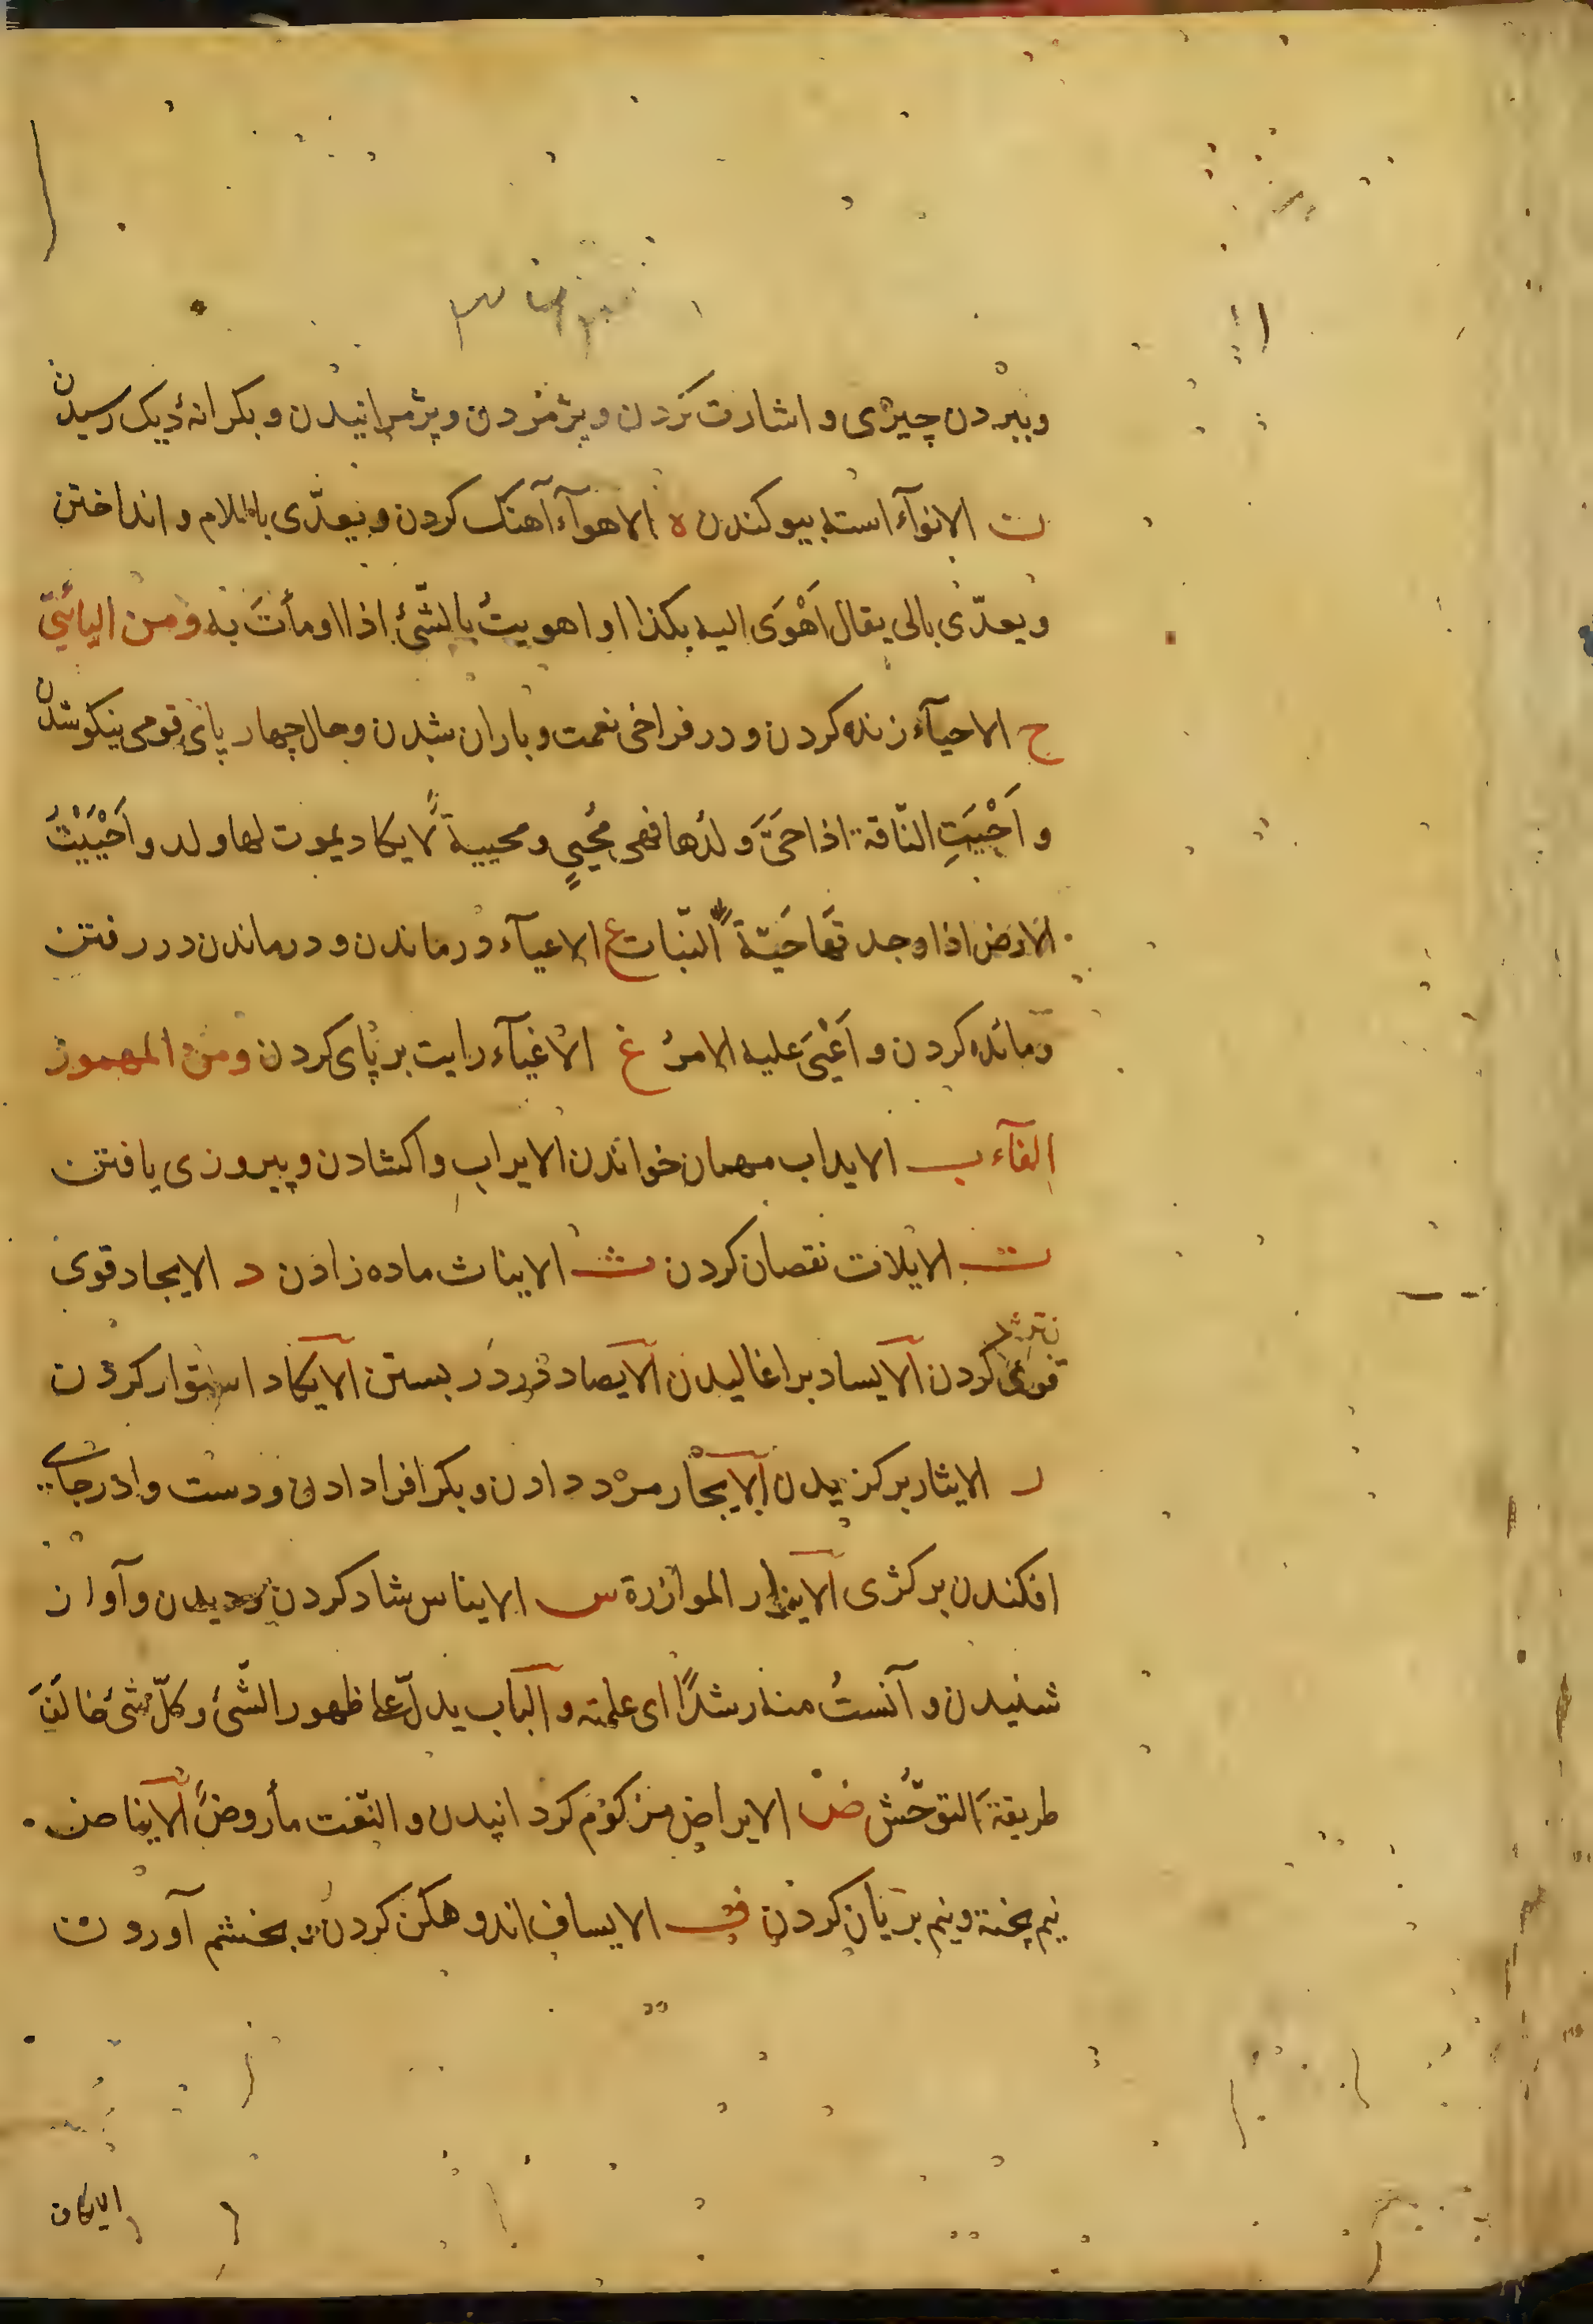 وببردن چیزی و اشارت کردن و پژمردن و پژمرانیدن و بکرانهٔ دیک رسیدن
ن الانوآء استه بیوکندن ه الاهوآء آهنک کردن و یعدّی باللام و انداختن
و یعدّی بالی یقال اَهْوَی الیه بکذا او اهویتُ بالشّیٔ اذا اومأتَ به ومن الیائیّ
ح الاحیآء زنده کردن و در فراخی نعمت و باران شدن و حال چهار پای قومی نیکو شدن
و اَحْیَتِ النّاقة اذا حَیَّ ولدُها فهی مُحْییٍ و محییةً لا یکاد یموت لها ولد و اَحْیَیْتُ
الارض اذا وجد تَها حَیّةً النّبات ع الاعیآء درماندن و درماندن در رفتن
و مانده کردن و اَعْیَی علیه الامرُ غ الاغیآء رایت بر پای کردن ومن المهموز
الفآء ب الایداب مهمان خواندن الایراب واکشادن و پیروزی یافتن
ت الایلات نقصان کردن ث الایناث ماده زادن د الایجاد قوی
قوی کردن الآیساد براغالیدن الآیصاد در در بستن الآیکاد استوار کردن
ر الایثار برکزیدن الآیجار مزد دادن و بکرا فرا دادن و دست وا در جای
افکندن بر کژی الآیزار الموازرة س الایناس شاد کردن و دیدن و آواز
شنیدن و آنستُ منه رشدًا ای علمته و الباب یدلّ علی ظهور الشّیٔ و کلّ شیٔ خالَفَ
طریقةَ التوحّش ض الایراض مزکوم کردانیدن و النّعت مأروضً الآیناض
نیم پخته و نیم بریان کردن ف الایساف اندوهکن کردن و بخشم آوردن
الایکاف